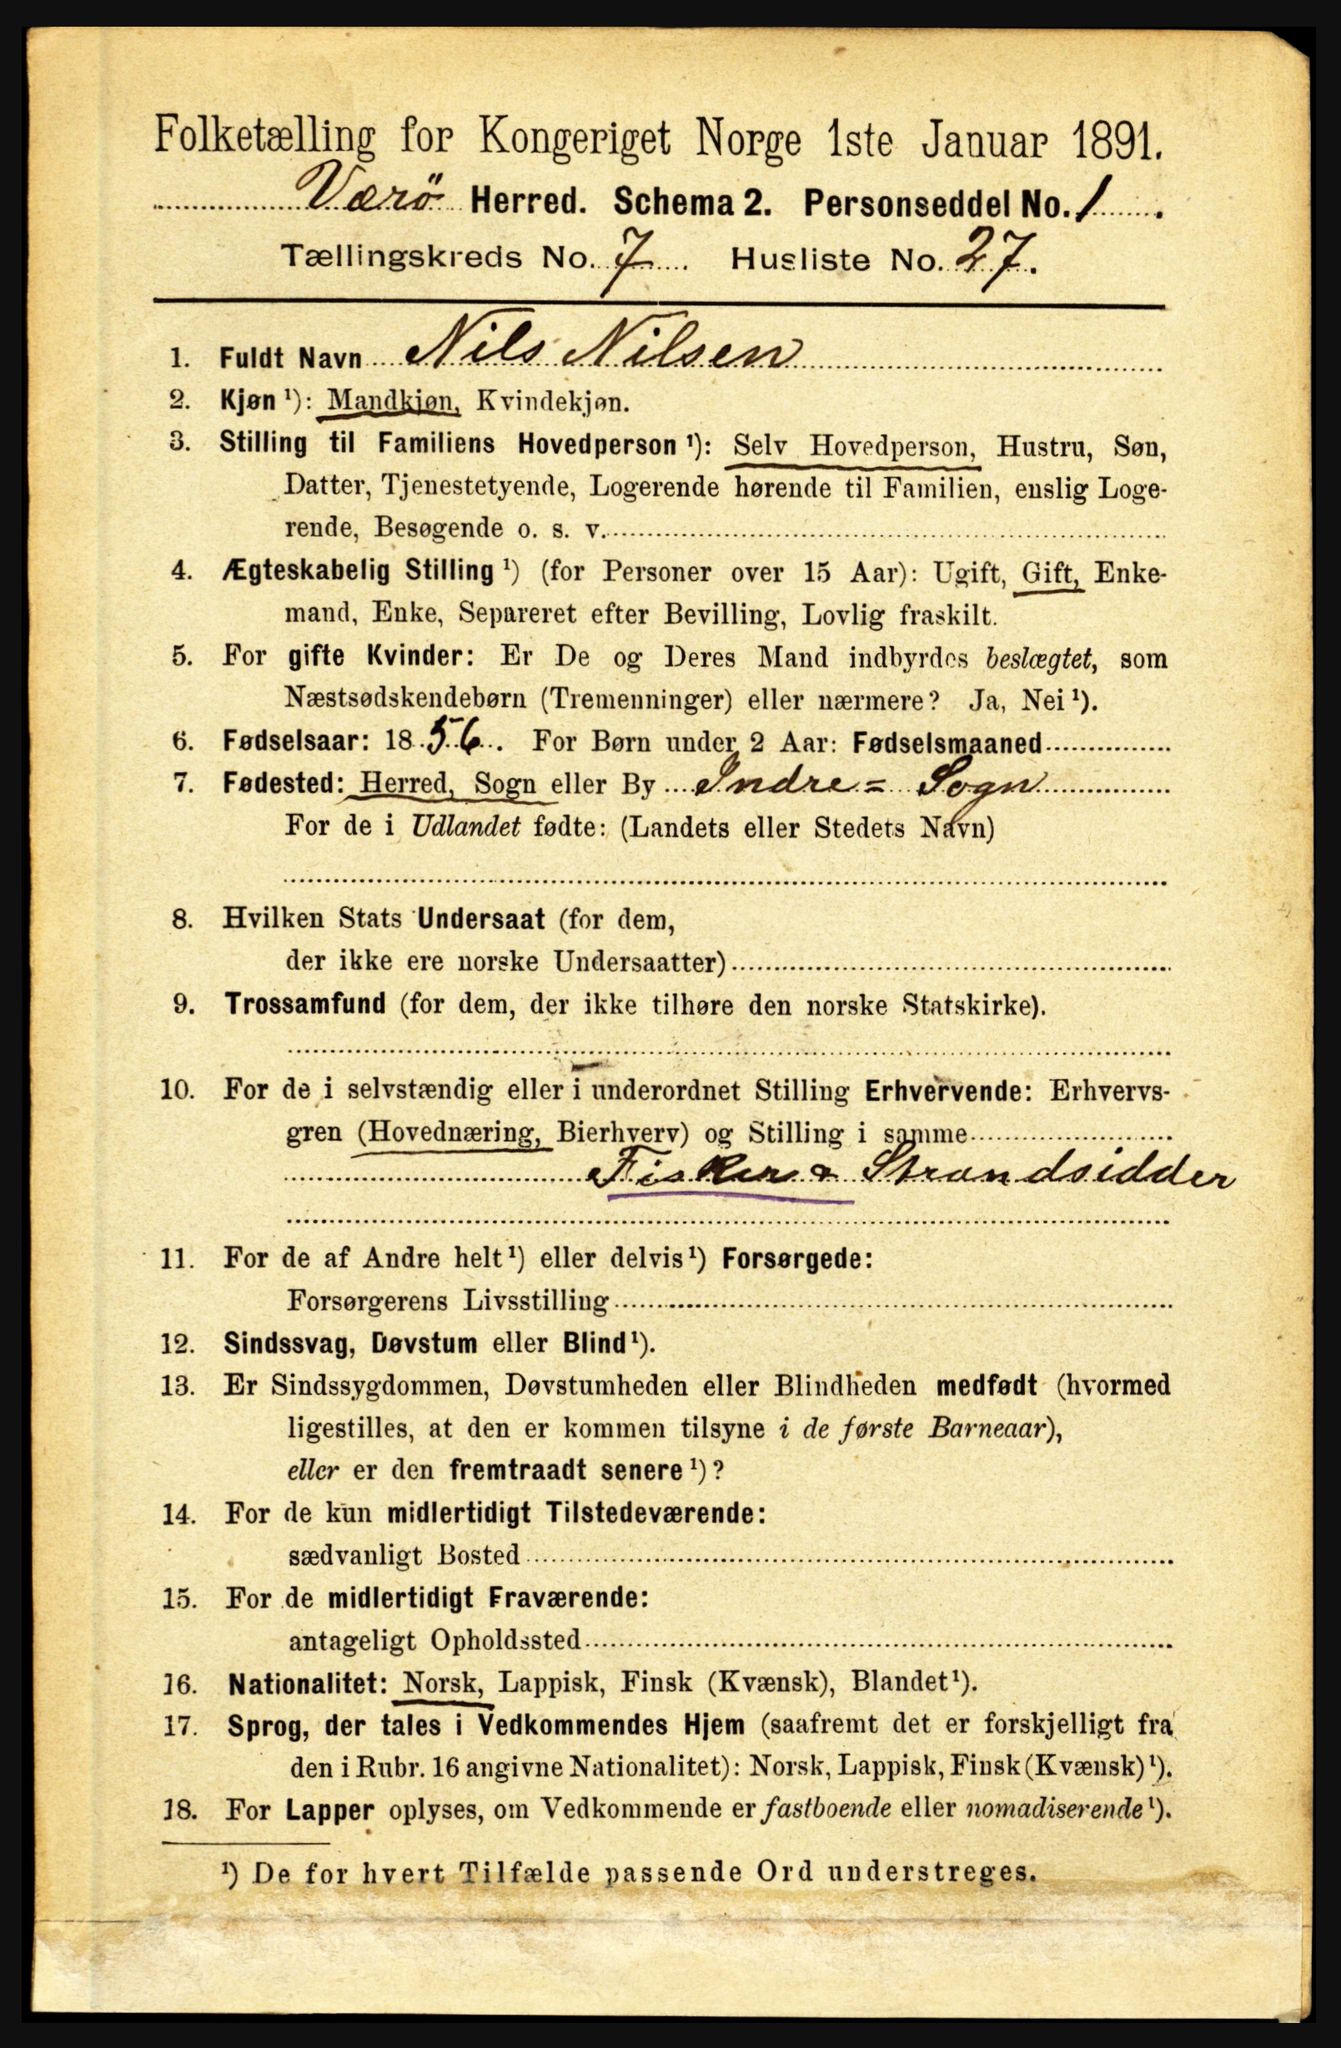 Folketælling for Kongeriget Norge 1ste Januar 1891.
Værö Herred. Schema 2. Personseddel No. 1.
Tællingskreds No. 7. Husliste No. 27.
1. Fuldt Navn Nils Nilsen
2. Kjøn ¹): Mandkjøn, Kvindekjøn.
3. Stilling til Familiens Hovedperson ¹): Selv Hovedperson, Hustru, Søn,
Datter, Tjenestetyende, Logerende hørende til Familien, enslig Loge-
rende, Besøgende o. s. v.
4. Ægteskabelig Stilling ¹) (for Personer over 15 Aar): Ugift, Gift, Enke-
mand, Enke, Separeret efter Bevilling, Lovlig fraskilt.
5. For gifte Kvinder: Er De og Deres Mand indbyrdes beslægtet, som
Næstsødskendebørn (Tremenninger) eller nærmere? Ja, Nei ¹).
6. Fødselsaar: 1856. For Børn under 2 Aar: Fødselsmaaned
7. Fødested: Herred, Sogn eller By Indre = Sogn
For de i Udlandet fødte: (Landets eller Stedets Navn)
8. Hvilken Stats Undersaat (for dem,
der ikke ere norske Undersaatter)
9. Trossamfund (for dem, der ikke tilhøre den norske Statskirke).
10. For de i selvstændig eller i underordnet Stilling Erhvervende: Erhvervs-
gren (Hovednæring, Bierhverv) og Stilling i samme
Fisker & Strandsidder
11. For de af Andre helt ¹) eller delvis ¹) Forsørgede:
Forsørgerens Livsstilling
12. Sindssvag, Døvstum eller Blind ¹).
13. Er Sindssygdommen, Døvstumheden eller Blindheden medfødt (hvormed
ligestilles, at den er kommen tilsyne i de første Barneaar),
eller er den fremtraadt senere ¹)?
14. For de kun midlertidigt Tilstedeværende:
sædvanligt Bosted
15. For de midlertidigt Fraværende:
antageligt Opholdssted
16. Nationalitet: Norsk, Lappisk, Finsk (Kvænsk), Blandet ¹).
17. Sprog, der tales i Vedkommendes Hjem (saafremt det er forskjelligt fra
den i Rubr. 16 angivne Nationalitet): Norsk, Lappisk, Finsk (Kvænsk) ¹).
18. For Lapper oplyses, om Vedkommende er fastboende eller nomadiserende ¹).
¹) De for hvert Tilfælde passende Ord understreges.